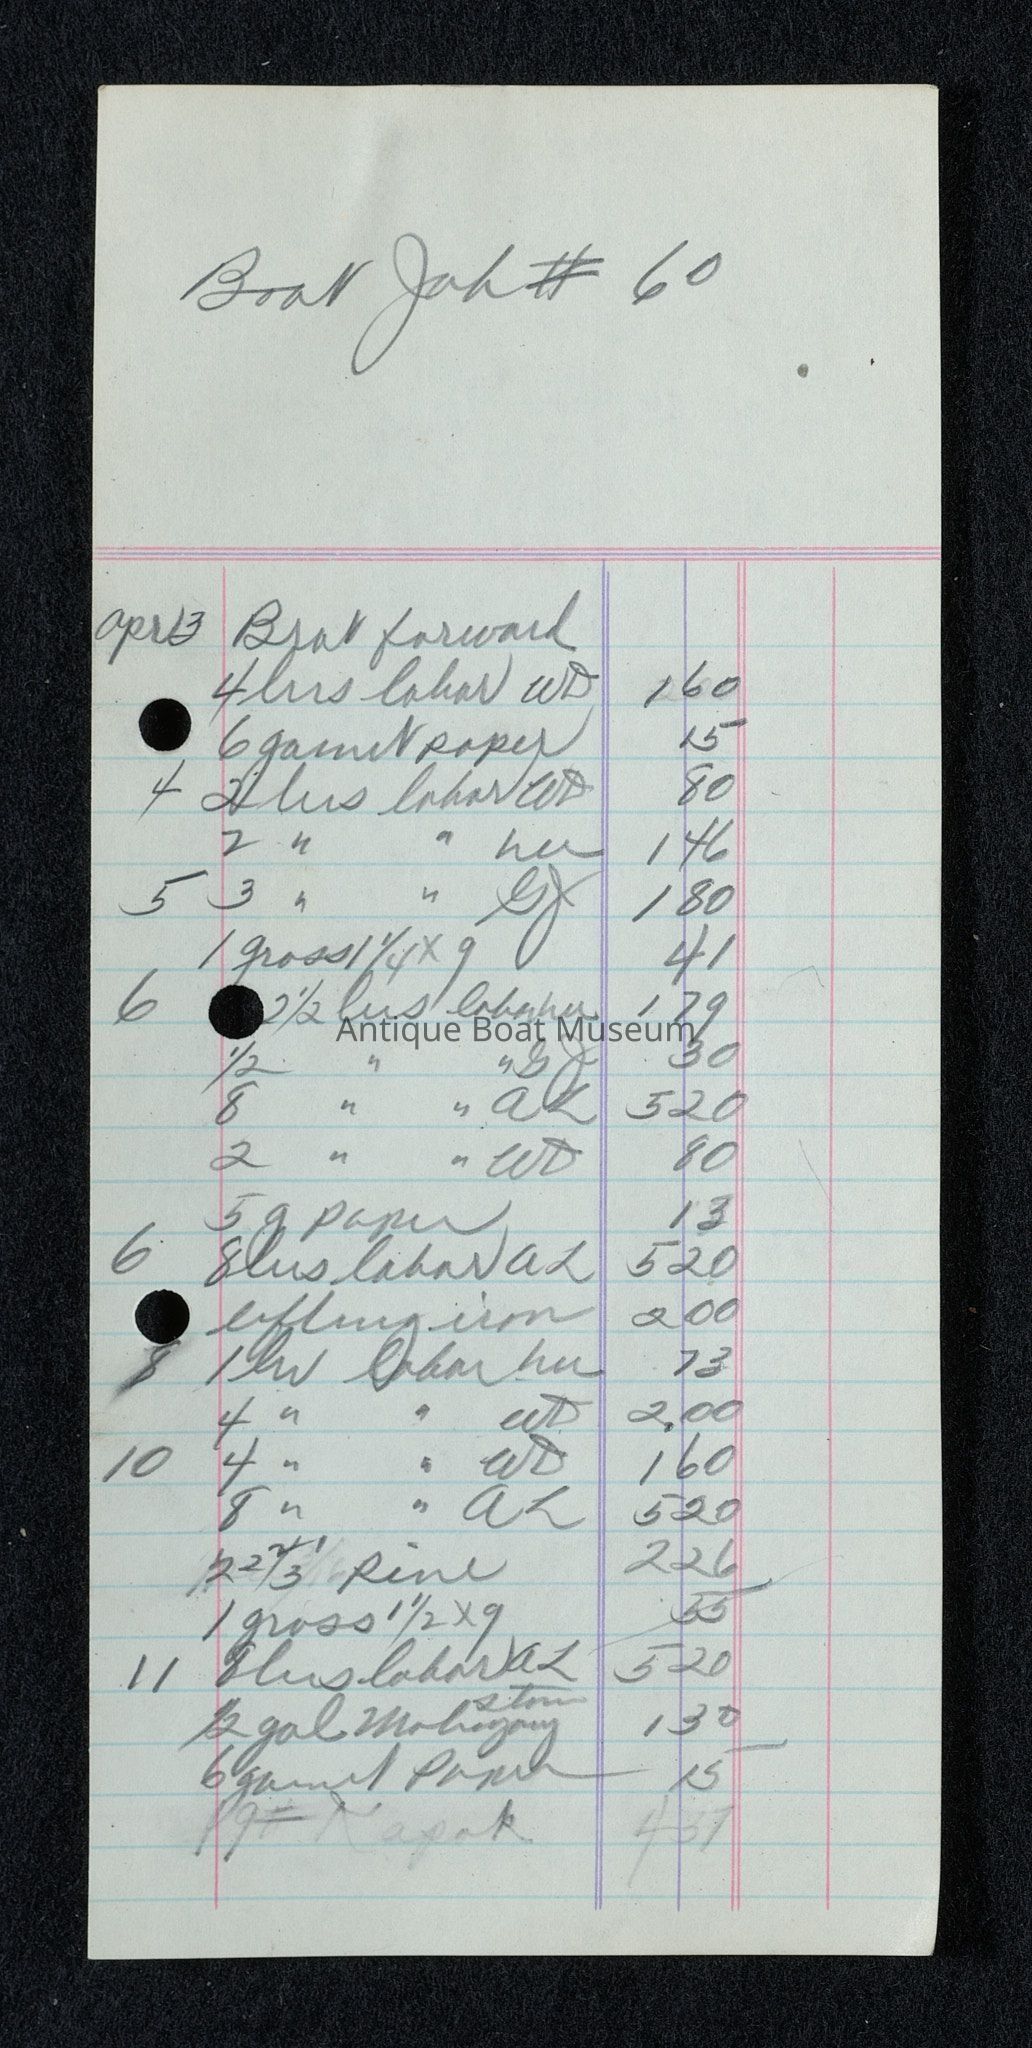 Boat Job # 60
Apr 3 Brot forward
4 hrs labor WD 160
6 garnet paper 15
4 2 hrs labor WD 80
2 " " hu 146
5 3 " " GJ 180
1 gross 1 1/4 x 9 41
6 2 1/2 hrs labor hu 179
Antique Boat Museum
1/2 " " GJ 30
8 " " AL 520
2 " " WD 80
5 g paper 13
6 8 hrs labor AL 520
lifting iron 200
8 1 hr labor hu 73
4 " " WD 2.00
10 4 " " WD 160
8 " " AL 520
pine 226
1 gross 1 1/2 x 9 55
11 8 hrs labor AL 520
1/2 gal Mahogany stain 130
6 garnet paper 15
Kapok 437